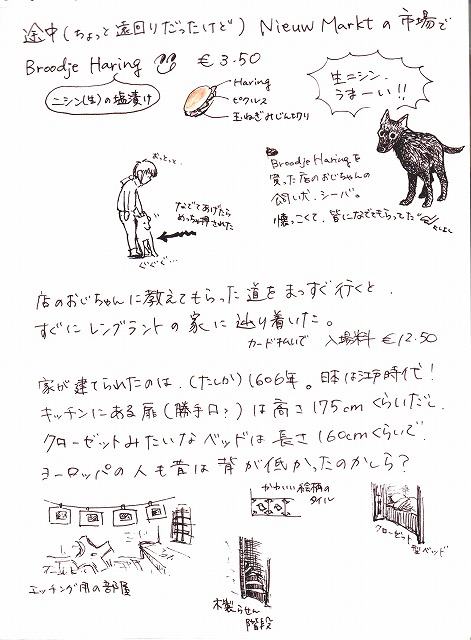 途中(ちょっと遠回りだったけど) Nieuw Marktの市場で
Broodje Haring €3.50
ニシン(生)の塩漬け
Haring
ピクルス
玉ねぎみじんぎり
生ニシン、
うまーい!!
おっとっと…
なでてあげたら
めっちゃ押された
ぐぐぐ…
Broodje Haringを
買った店のおじちゃんの
飼い犬、シーバ。
懐っこくて、皆になでてもらってた
よしよし
店のおじちゃんに教えてもらった道をまっすぐ行くと、
すぐにレングラントの家に辿り着いた。
カード払いで 入場料 €12.50
家が建てられたのは、(たしか)1606年。日本は江戸時代!
キッチンにある扉(勝手口?)は高さ175cmくらいだし、
クローゼットみたいなベッドは長さ160cmくらいで、
ヨーロッパの人も昔は背が低かったのかしら?
かわいい絵柄の
タイル
クローゼット
型ベッド
エッチング用の部屋
木製らせん
階段